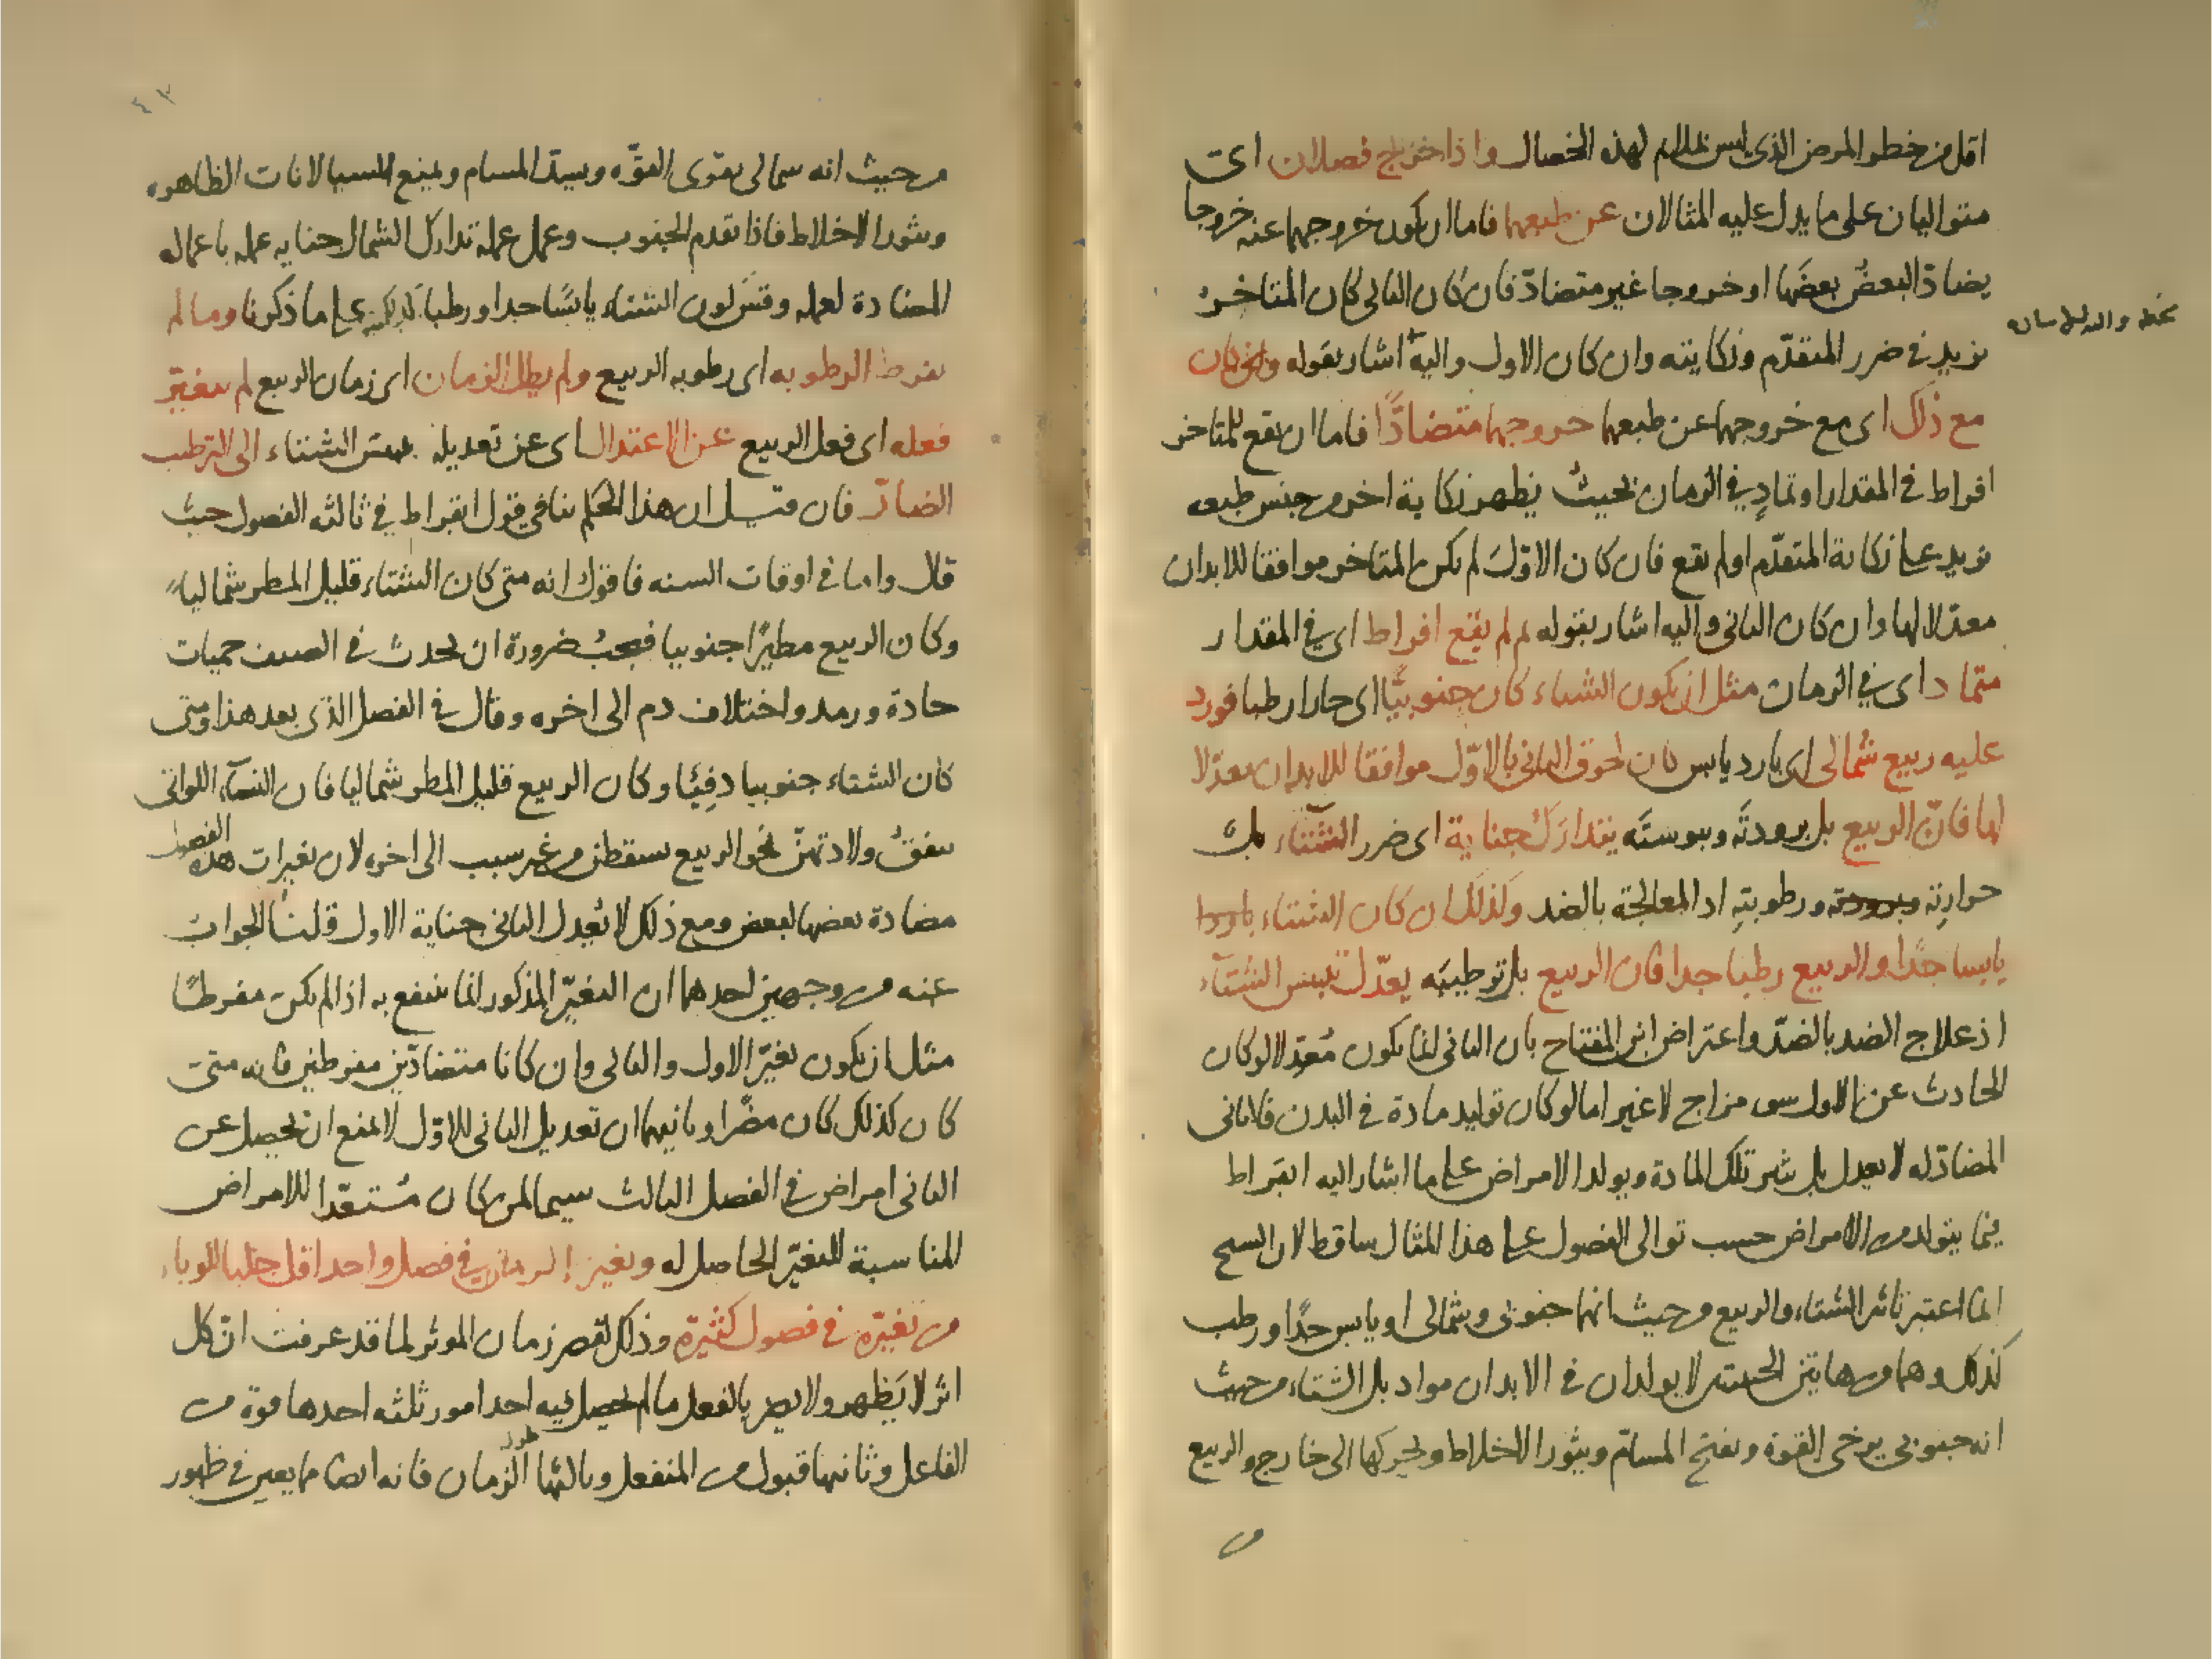 اقل من خطر المرض الذى ليس بملائم لهذه الخصال واذا خرج فصلان اى
متواليان على ما يدل عليه المثالان عن طبعهما فاما ان يكون خروجهما عنه خروجا
يضادّ البعضُ بعضَها او خروجا غير متضادّ فان كان الثانى كان المتاخر
يزيد فى ضرر المتقدّم ونكايته وان كان الاول واليه اشار بقوله وان كان
مع ذلك اى مع خروجهما عن طبعهما خروجهما متضادًّا فاما ان يقع للمتاخر
افراط فى المقدار او تمادٍ فى الزمان بحيث يظهر نكاية اخر من جنس طبعه
يزيد على نكاية المتقدّم او لم يقع فان كان الاوّل لم يكن المتاخر موافقا للابدان
معدّلا لها وان كان الثانى واليه اشار بقوله ثم لم يقع افراط اى فى المقدار
متماد اى فى الزمان مثل ان يكون الشتاء كان جنوبيًّا اى حارا رطبا فورد
عليه ربيع شمالى اى بارد يابس كان لحوق الثانى بالاوّل موافقا للابدان معدّلا
لها فانّ الربيع بل برودتَه ويبوستَه يتدارك جناية اى ضرر الشتاء بل
حرارته وبرودته ورطوبتِه اذ المعالجة بالضد وكذلك ان كان الشتاء باردا
يابسا جدًا والربيع رطبا جدا فان الربيع بل ترطيبَه يعدّل تيبيس الشتاء
اذ علاج الضد بالضدّ واعتراض ابن المفتاح بان الثانى انما يكون مُعدّلا لو كان
الحادث عن الاول سوء مزاج لا غير اما لو كان توليد مادة فى البدن فلا الثانى
المضادّ له لا يعدل بل يثير تلك المادة ويولد الامراض على ما اشار اليه ابقراط
فيما يتولد من الامراض حسب توالى الفصول على هذا المثال ساقط لان الشيخ
انما اعتبر تاثير الشتاء والربيع من حيث انهما جنوبى وشمالى او يابس جدًا ورطب
كذلك وهما من هاتين الحيثيتين لا يولدان فى الابدان مواد بل الشتاء من حيث
انه جنوبى يرخى القوة ويفتح المسامّ ويثور الاخلاط ويحركها الى خارج والربيع
من
٤٣
من حيث انه شمالى يقوى القوّه ويسدّ المسام ويمنع السيالانات الظاهره
ويثور الاخلاط فاذا تقدم الجنوب وعمل عمله تدارك الشمال جنايه عمله باعماله
المضادة لعمله وقس كون الشتاء يابسًا جدا ورطبا على ما ذكرنا وما لم
يفرط الرطوبه اى رطوبه الربيع ولم يطل الزمان اى زمان الربيع لم يتغيّر
فعله اى فعل الربيع عن الاعتدال اى عن تعديله يبس الشتاء الى الترطيب
الضارّ فان قيل ان هذا الحكم ينافى قول ابقراط فى ثالثه الفصول حيث
قال واما فى اوقات السنه فاقول انه متى كان الشتاء قليل المطر شماليا
وكان الربيع مطيرًا جنوبيا فيجبُ ضرورة ان يحدث فى الصيف حميات
حادة ورمد واختلاف دم الى اخره وقال فى الفصل الذى بعد هذا ومتى
كان الشتاء جنوبيا دفِيًا وكان الربيع قليل المطر شماليا فان النساء اللواتى
يتفق ولادتهنّ نحو الربيع يسقطن من غير سبب الى اخره لان تغيرات هذه الفصول
مضادة بعضها لبعض ومع ذلك لا يُعدل الثانى جناية الاول قلنا الجواب
عنه من وجهين احدهما ان التغيّر المذكور انما ينتفع به اذا لم يكن مفرطًا
مثل ان يكون تغيّر الاول والثانى وان كانا متضادّين مفرطين فانه متى
كان كذلك كان مضرا وثانيهما ان تعديل الثانى للاوّل لا يمنع ان يحصل عن
الثانى امراض فى الفصل الثالث سيما لمن كان مُستعدّا للامراض
المناسبة للتغيّر الحاصل له وتغير الزمان فى فصل واحد اقل جلبا للوباء
من تغيّره فى فصول كثيرة وذلك لقصر زمان الموثر لما قد عرفت انّ كل
اثر لا يَظهر ولا يصير بالفعل ما لم يحصل فيه احد امور ثلثه احدها قوة من
الفاعل وثانيها قبول من المنفعل وثالثها طول الزمان فانه ايضا مما يعين فى ظهور